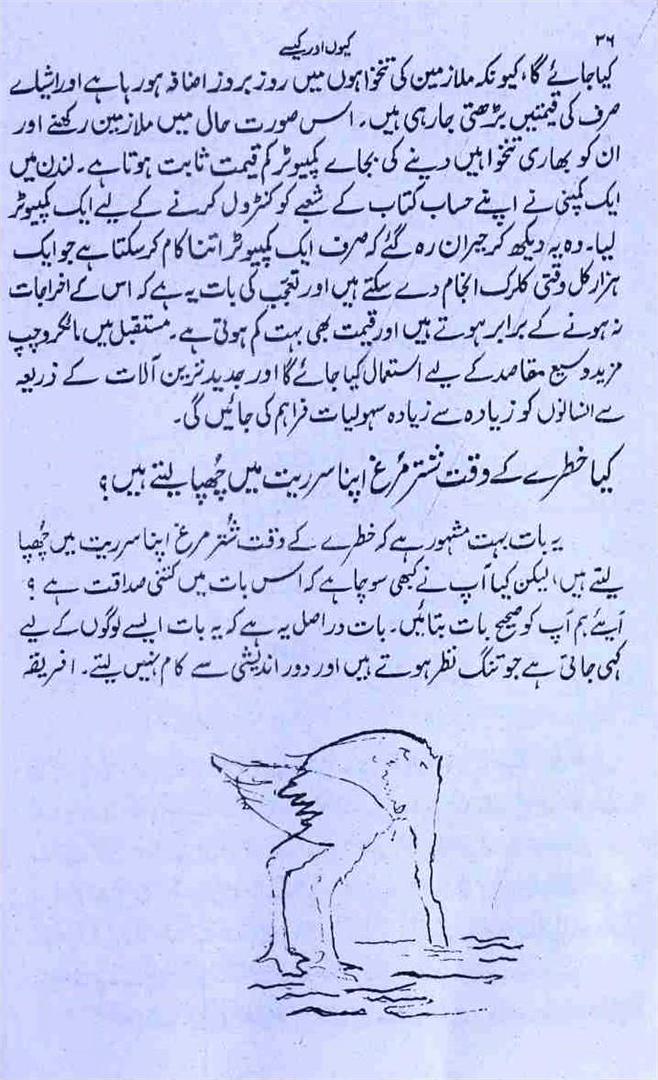 ۳۶
کیوں اور کیسے
کیا جائے گا، کیونکہ ملازمین کی تنخواہوں میں روز بروز اضافہ ہورہا ہے اور اشیاے
صرف کی قیمتیں بڑھتی جارہی ہیں۔ اس صورت حال میں ملازمین رکھنے اور
ان کو بھاری تنخواہیں دینے کی بجاے کمپیوٹر کم قیمت ثابت ہوتا ہے۔ لندن میں
ایک کمپنی نے اپنے حساب کتاب کے شعبے کو کنٹرول کرنے کے لیے ایک کمپیوٹر
لیا۔ وہ یہ دیکھ کر حیران رہ گئے کہ صرف ایک کمپیوٹر اتنا کام کرسکتا ہے جو ایک
ہزار کل وقتی کلرک انجام دے سکتے ہیں اور تعجب کی بات یہ ہے کہ اس کے اخراجات
نہ ہونے کے برابر ہوتے ہیں اور قیمت بھی بہت کم ہوتی ہے۔ مستقبل میں مائکروچپ
مزید وسیع مقاصد کے لیے استعمال کیا جائے گا اور جدید ترین آلات کے ذریعہ
سے انسانوں کو زیادہ سے زیادہ سہولیات فراہم کی جائیں گی۔
کیا خطرے کے وقت شتر مرغ اپنا سر ریت میں چھپا لیتے ہیں؟
یہ بات بہت مشہور ہے کہ خطرے کے وقت شتر مرغ اپنا سر ریت میں چھپا
لیتے ہیں، لیکن کیا آپ نے کبھی سوچا ہے کہ اس بات میں کتنی صداقت ہے ؟
آیئے ہم آپ کو صحیح بات بتائیں۔ بات دراصل یہ ہے کہ یہ بات ایسے لوگوں کے لیے
کہی جاتی ہے جو تنگ نظر ہوتے ہیں اور دور اندیشی سے کام نہیں لیتے۔ افریقہ